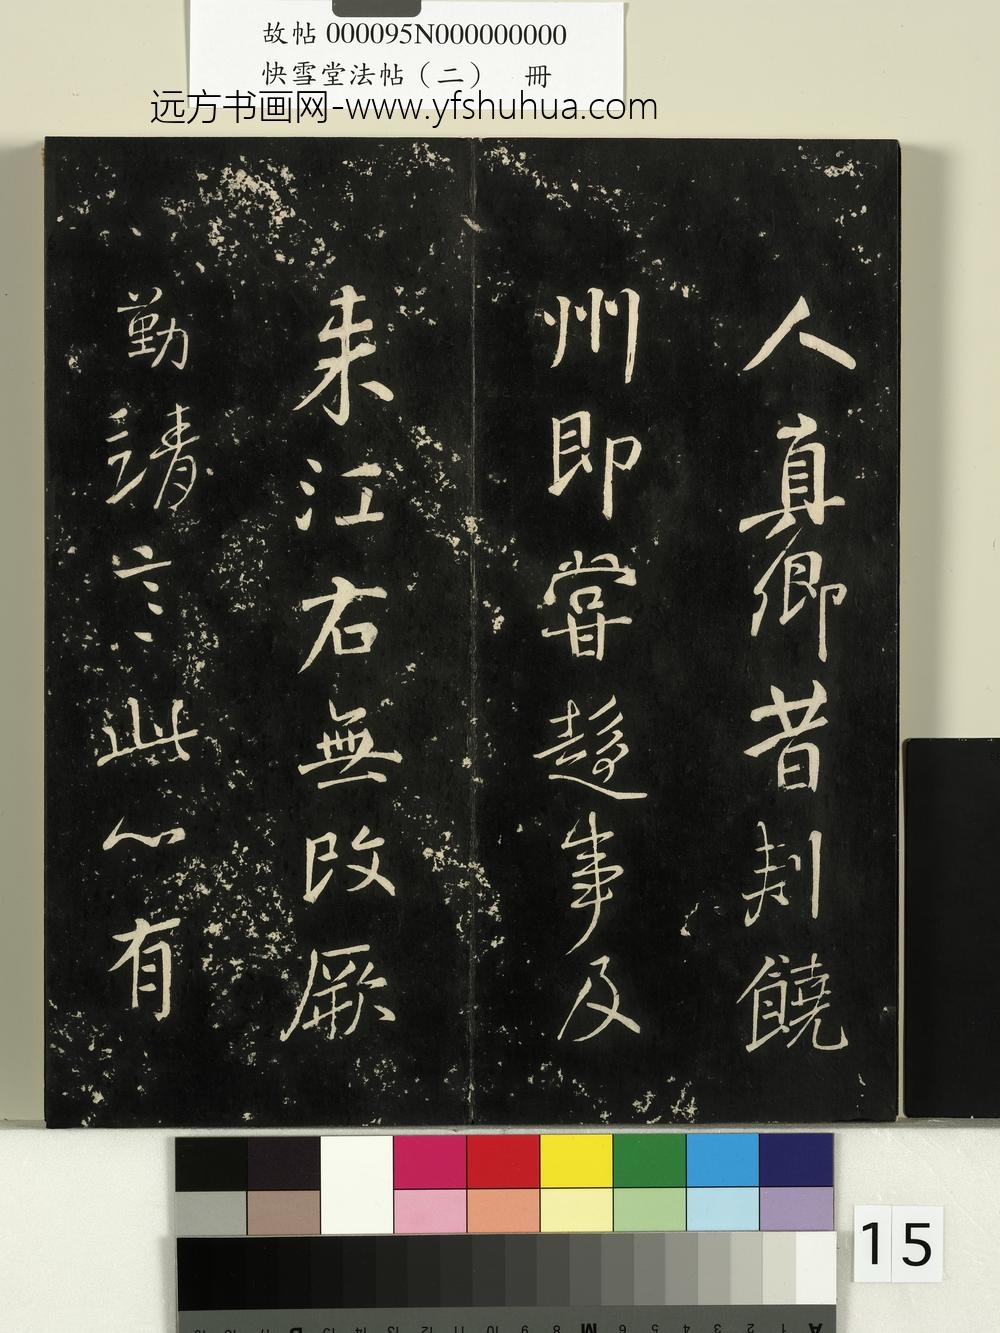 故帖 000095N000000000
快雪堂法帖（二） 冊
远方书画网-www.yfshuhua.com
人真卿昔刺饒
州即嘗趍事及
来江右無改厥
勤請言此心有
15